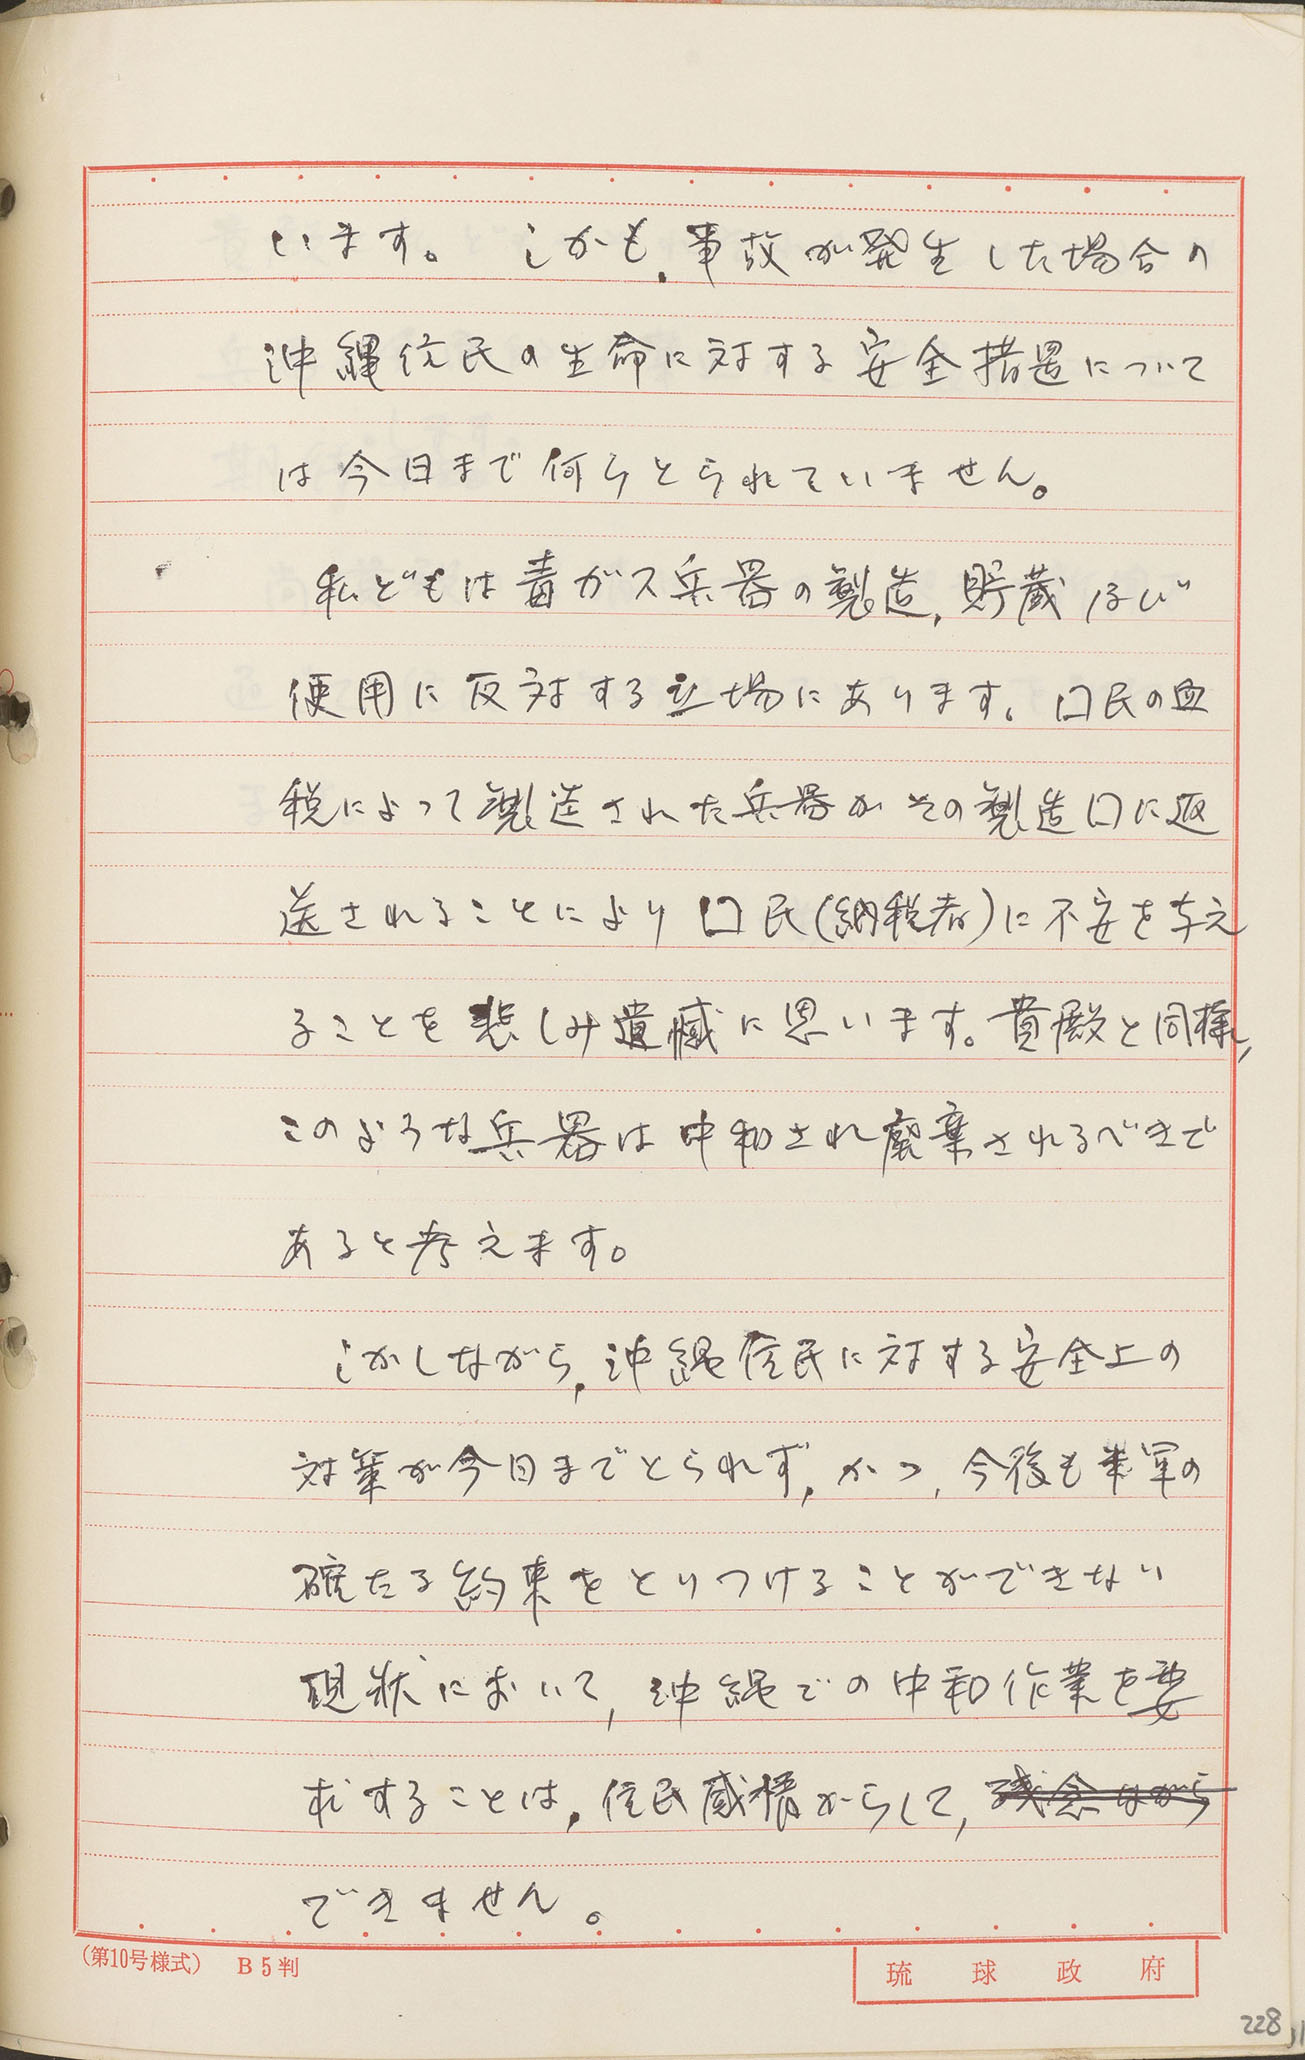 います。 しかも、事故が発生した場合の
沖縄住民の生命に対する安全措置について
は今日まで何らとられていません。
私どもは毒ガス兵器の製造、貯蔵及び
使用に反対する立場にあります。口民の血
税によって製造された兵器がその製造口に返
送されることにより口民(納税者)に不安を与え
ることを悲しみ遺憾に思います。貴殿と同様、
このような兵器は中和され廃棄されるべきで
あると考えます。
しかしながら、沖縄住民に対する安全上の
対策が今日までとられず、かつ、今後も米軍の
確たる約束をとりつけることができない
現状において、沖縄での中和作業を要
求することは、住民感情からして、残念ながら
できません。
(第10号様式) B5判
琉球政府
228